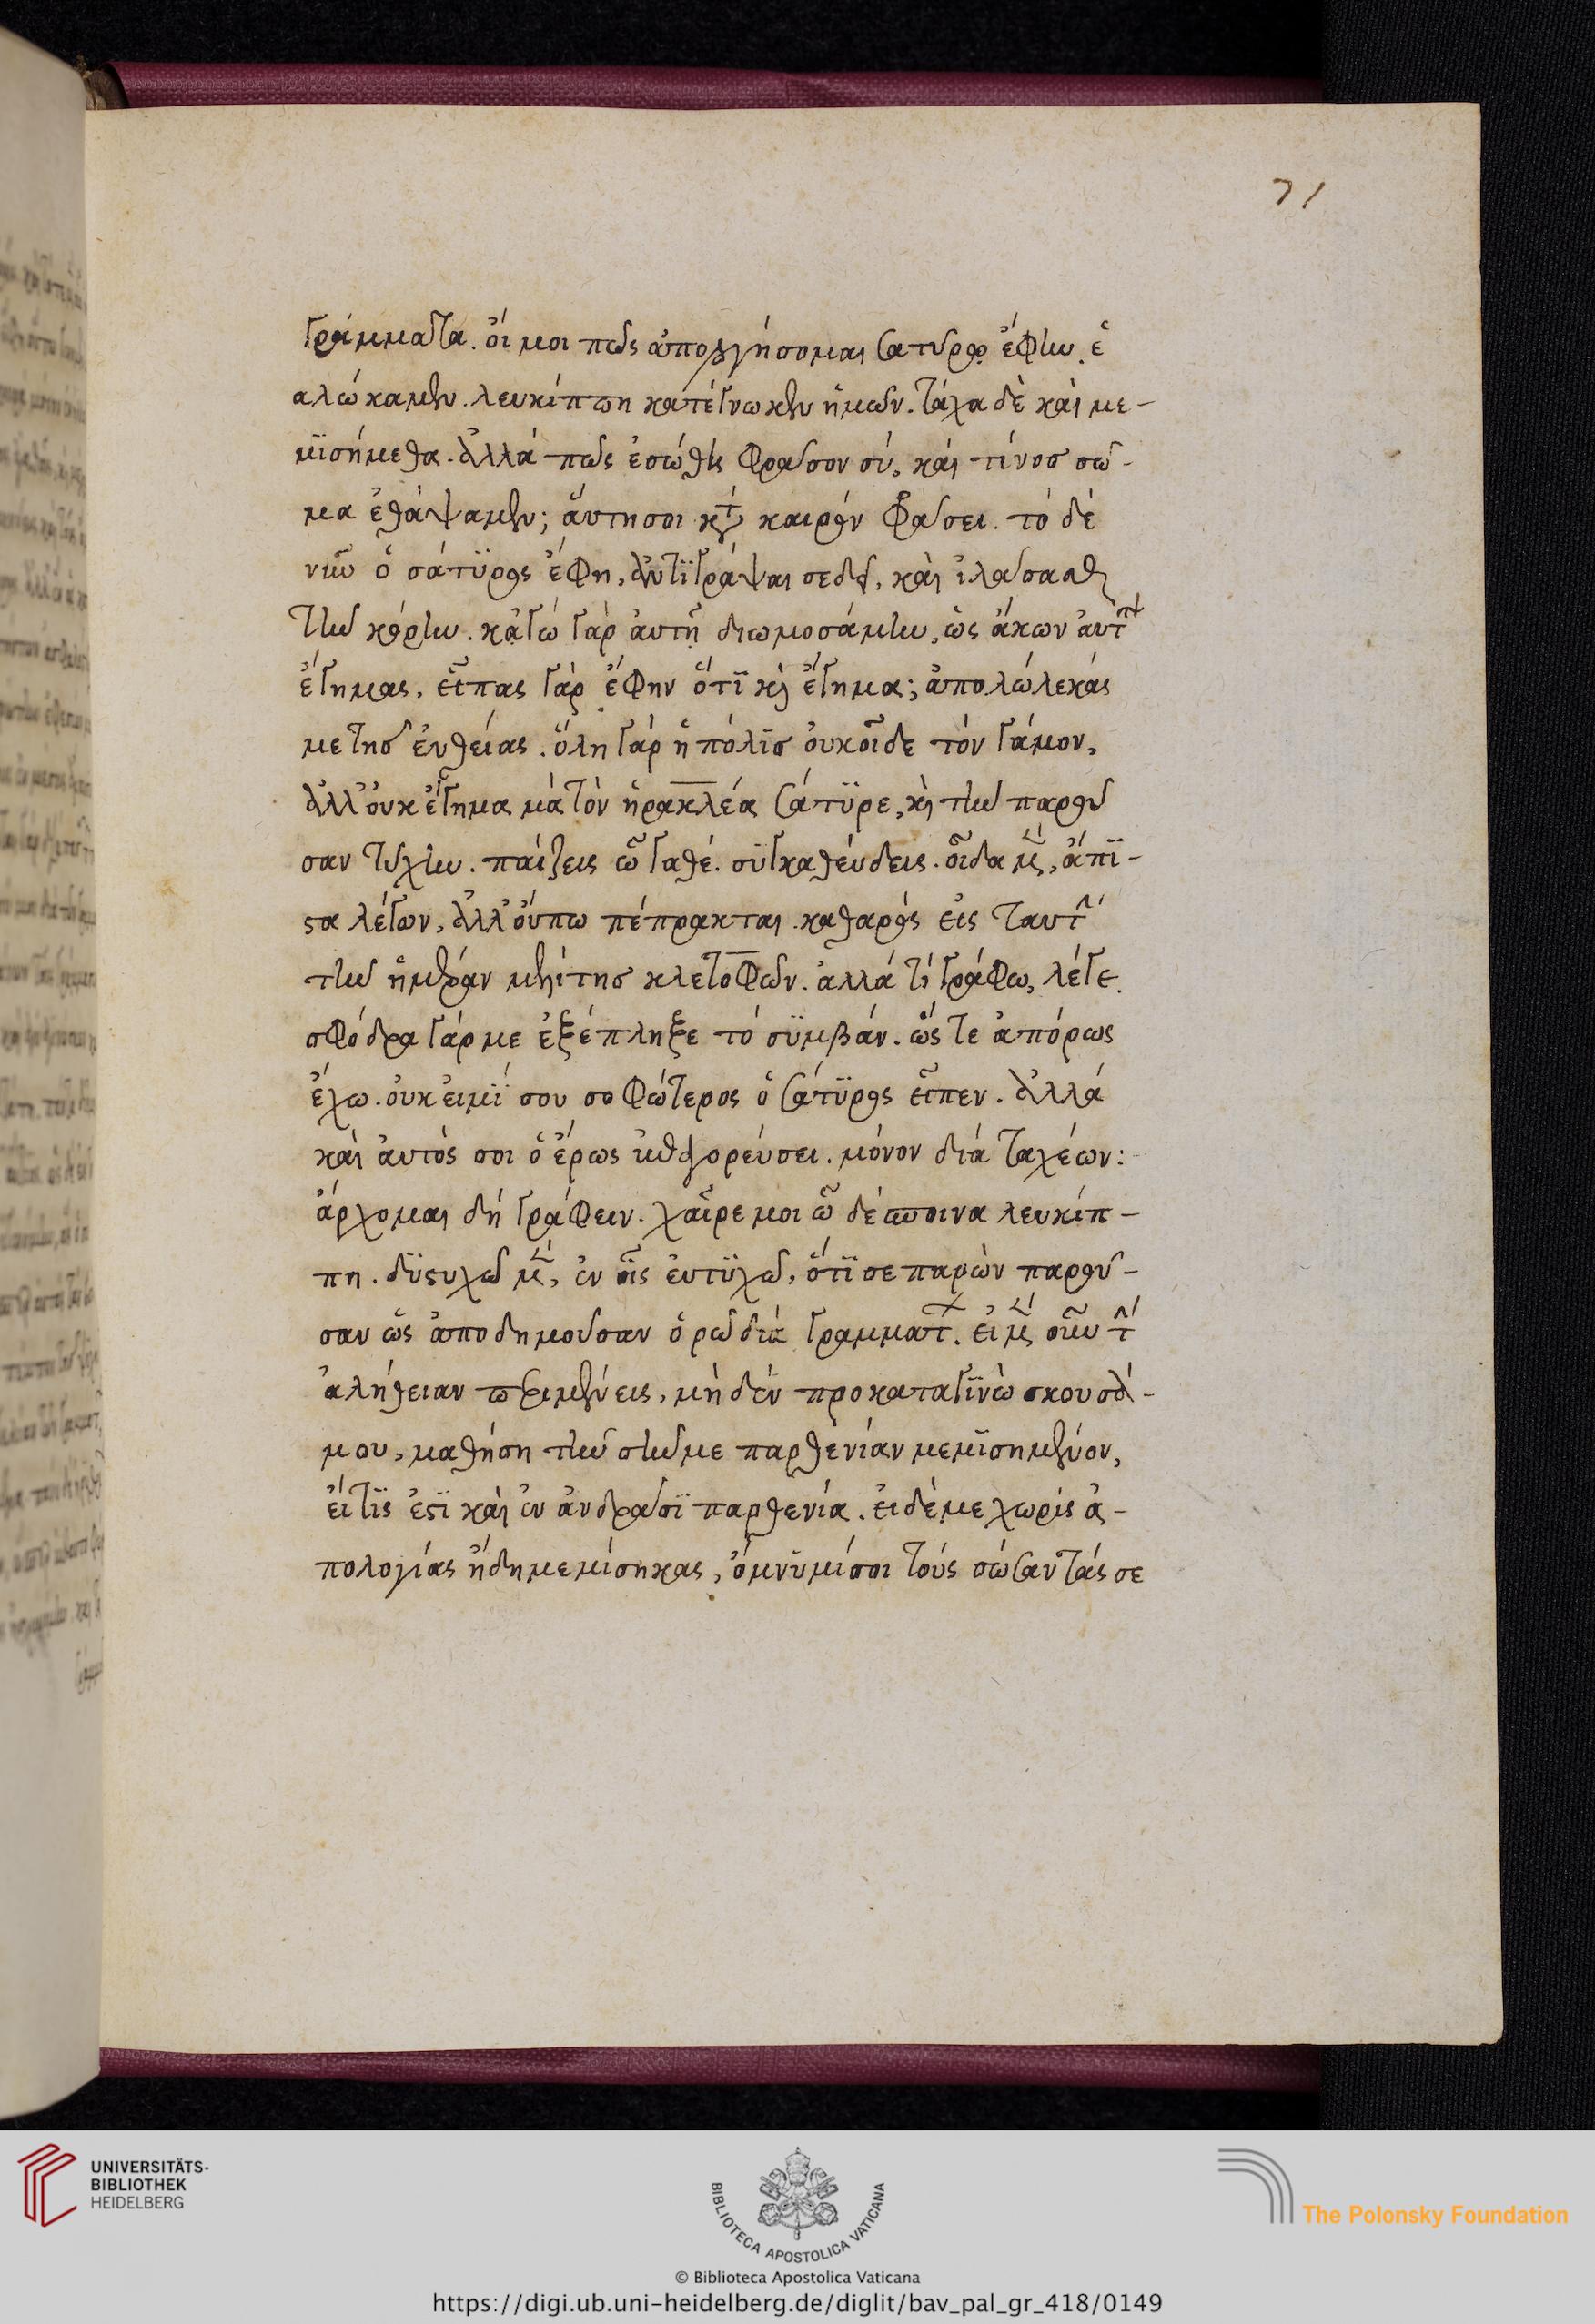 71
γράμματα. οἴ μοι πῶς ἀπολογήσομαι σατύρῳ ἔφην. ἑ
αλώκαμεν. λευκίππη κατέγνωκεν ἡμῶν. τάχα δὲ καὶ με-
μϊσήμεθα. ἀλλά πῶς ἐσώθης φράσον σύ, καὶ τίνος σῶ-
μα ἐθάψαμεν; ἄυτη σοι κατὰ καιρόν φράσει. τό δέ
νῦν ὁ σάτϋρος ἔφη, ἀντϊγράψαι σε δεῖ, καὶ ἱλάσασθαι
τὴν κόρην. κἀγώ γὰρ ἀυτῇ διωμοσάμην, ὡς ἄκων ἀυτὴν
ἔγημας. εἶπας γάρ ἔφην ὅτϊ καὶ ἔγημα; ἀπολώλεκάς
με τῆς ἐυηθείας. ὅλη γάρ ἡ πόλϊσ ὀυκ οἶδε τόν γάμον,
ἀλλ' ὀυκ ἔγημα μὰ τὸν ἡρακλέα σάτϋρε, καὶ τὴν παροῦ
σαν τύχην. παίζεις ὦ γαθέ. συγκαθέυδεις. οἶδα μὲν, ἄπϊ-
στα λέγων, ἀλλ' ὄυπω πέπρακται. καθαρός εἰς ταύτην
τὴν ἡμέραν μελίτης κλειτοφῶν. ἀλλά τί γράφω, λέγε.
σφόδρα γάρ με ἐξέπληξε τό σϋμβάν. ὥς τε ἀπόρως
ἔχω. ὀυκ ειμϊ σου σοφώτερος ὁ σάτϋρος εἶπεν. ἀλλά
καὶ ἀυτός σοι ὁ ἔρως ὑπαγορέυσει. μόνον διά ταχέων:
ἄρχομαι δή γράφειν. χαῖρε μοι ὦ δέσποινα λευκίπ-
πη. δϋστυχῶ μὲν, ἐν οἷς ἐυτϋχῶ, ὅτϊ σε παρὼν παροῦ-
σαν ὡς ἀποδημοῦσαν ὁρῶ διὰ γραμμάτων. εἰ μὲν οὖν τὴν
ἀλήθειαν περιμένεις, μὴ δέν προκαταγϊνώσκουσά-
μου, μαθήση τὴν σήν με παρθενίαν μεμϊσημένον,
εἴ τϊς ἐστϊ καὶ ἐν ἀνδράσϊ παρθενία. ἐι δέ με χωρίς ἀ-
πολογίας ἤδη μεμίσηκας, ὄμνυμί σοι τοὺς σώσαντάς σε
UNIVERSITÄTS-
BIBLIOTHEK
HEIDELBERG
BIBLIOTECA APOSTOLICA VATICANA
The Polonsky Foundation
© Biblioteca Apostolica Vaticana
https://digi.ub.uni-heidelberg.de/diglit/bav_pal_gr_418/0149